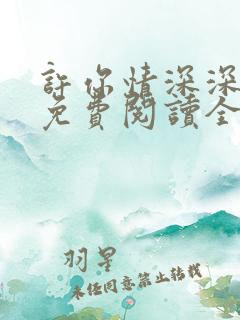 許你情深深
免費閱讀全
羽星
未經同意禁止轉載